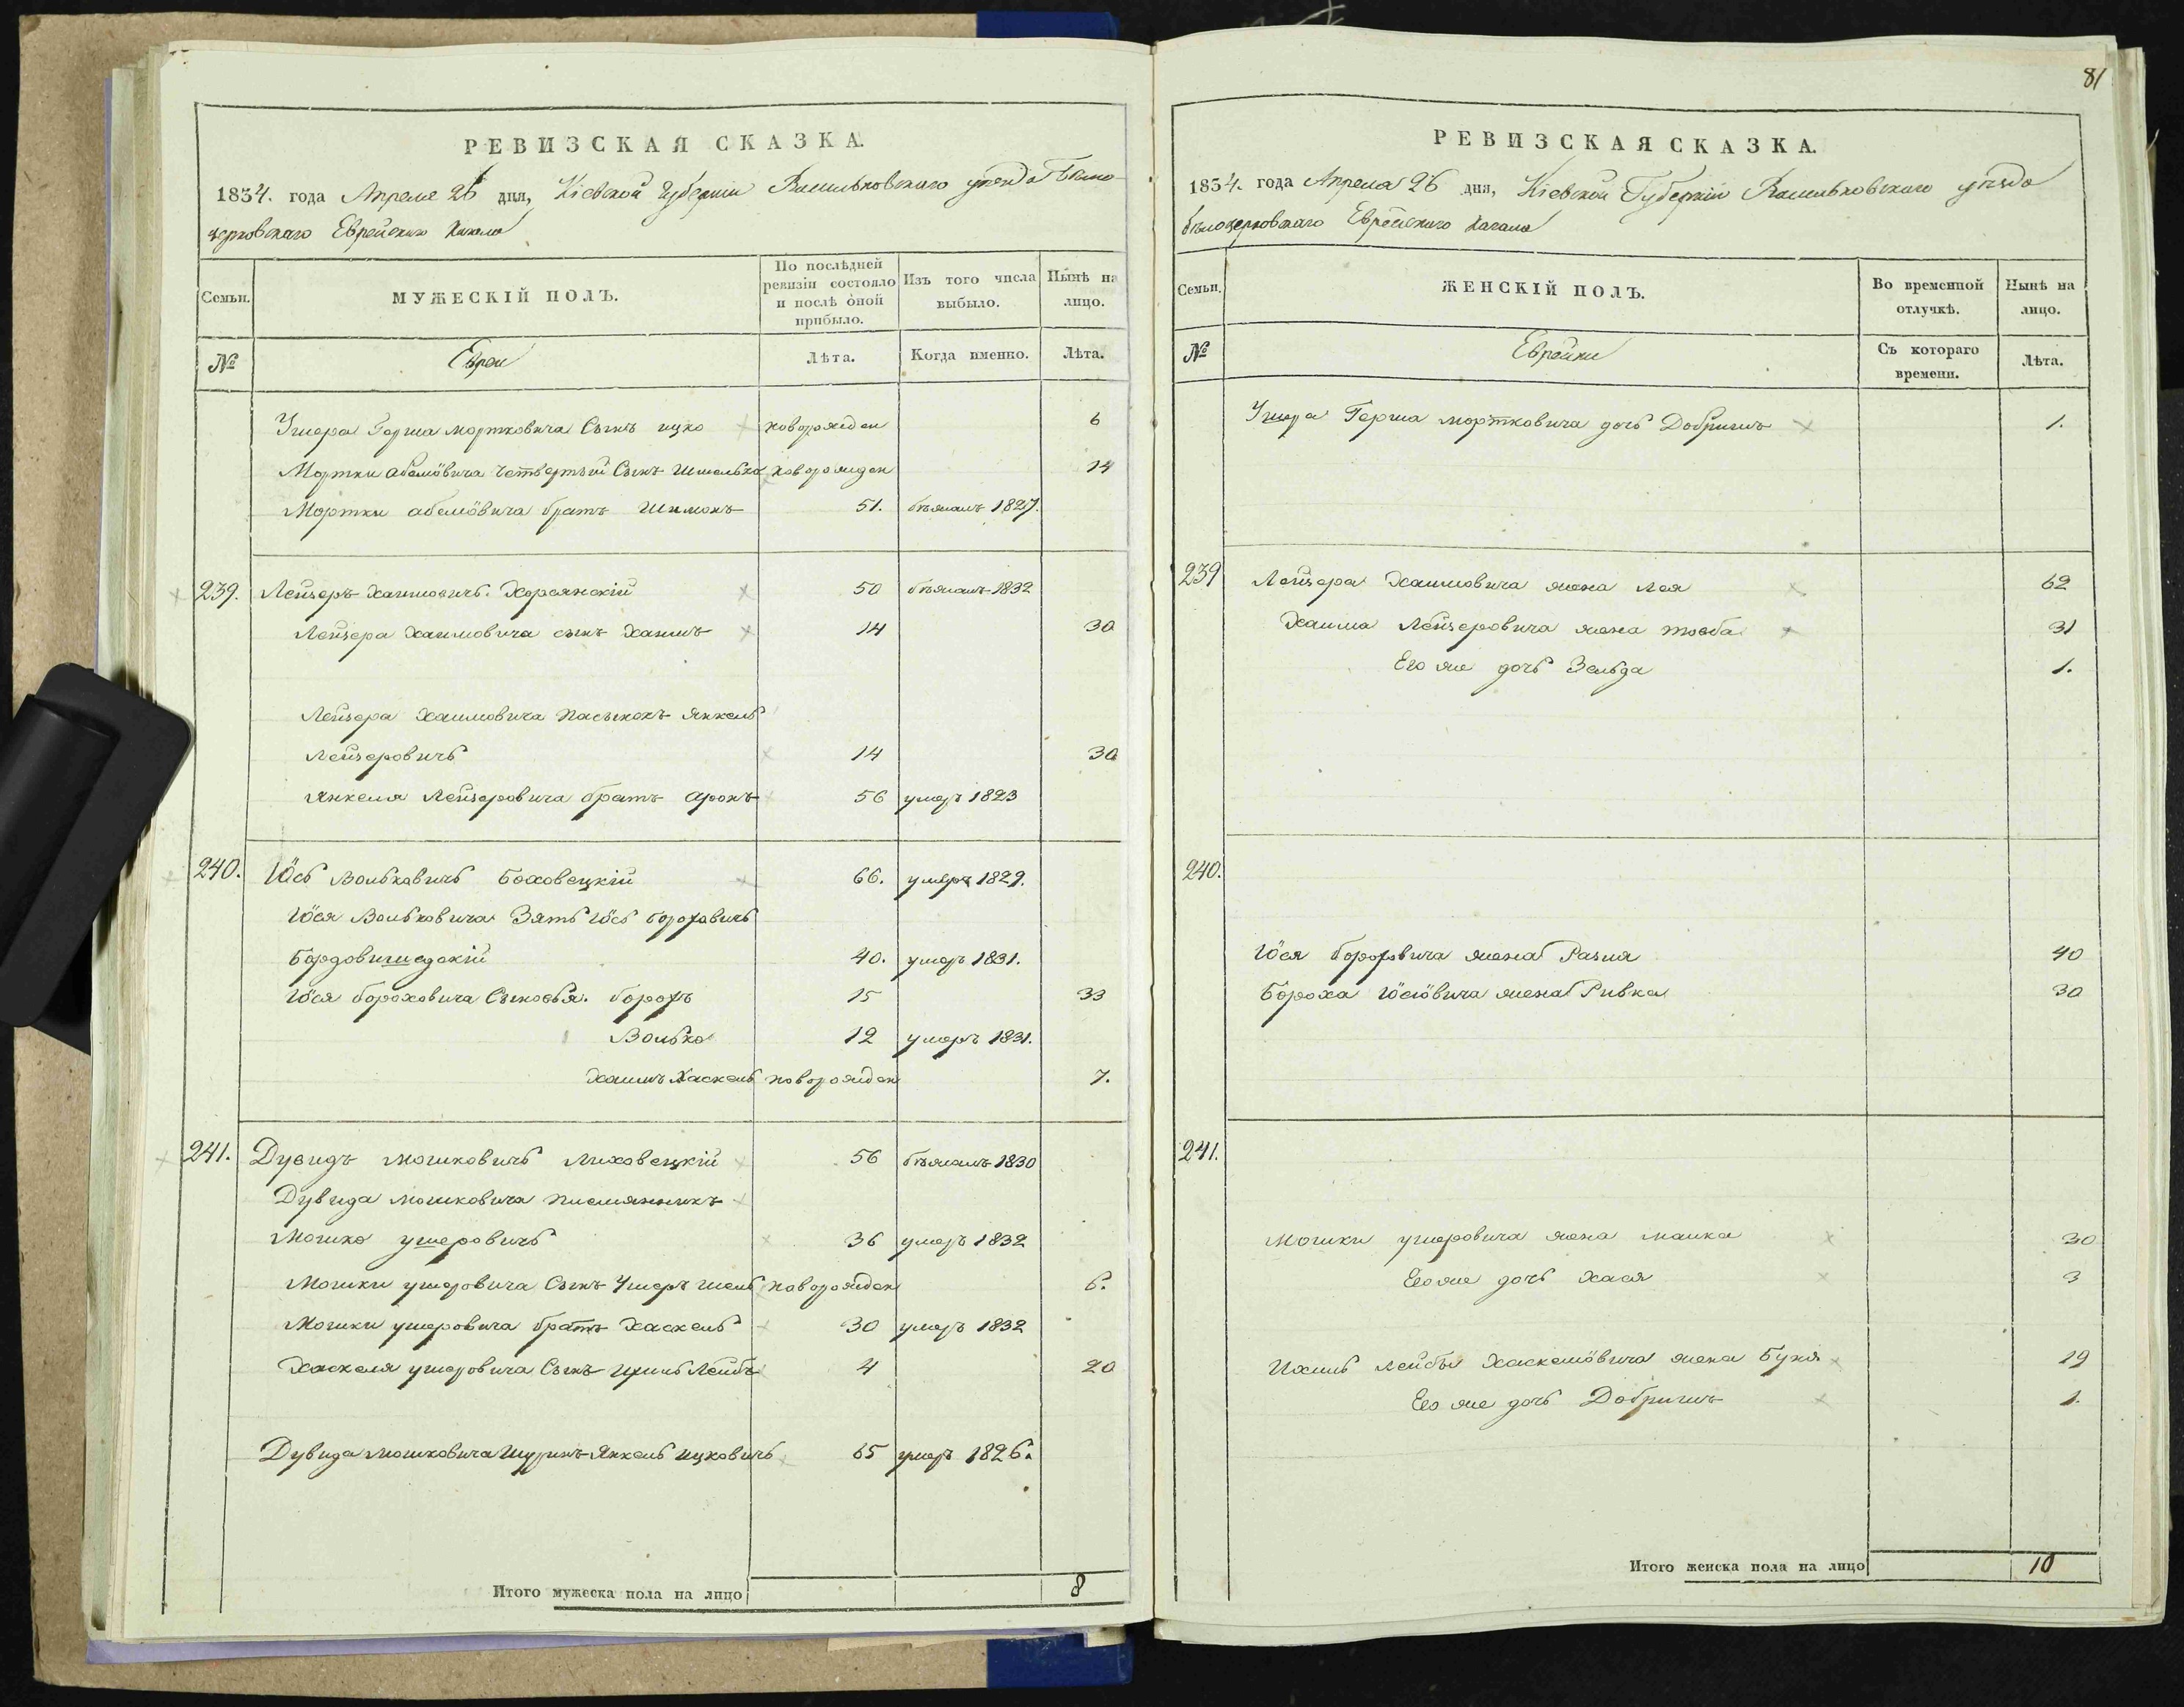 81
РЕВИЗСКАЯ СКАЗКА.
1834. года Апреля 26 дня, Кіевской Губерніи Васильковскаго уѣзда Бѣло-
церковскаго Еврейскаго Кагала
Семьи. МУЖЕСКІЙ ПОЛЪ. По послѣдней ревизіи состояло и послѣ оной прибыло. Изъ того числа выбыло. Нынѣ на лицо.
№ Евреи Лѣта. Когда именно. Лѣта.
Ушера Герша мортковича Сынъ ицко новорожден 6
Мортки абамовича четвертый Сынъ Шмелько новорожден 14
Мортки абамовича братъ Шимонъ 51. бѣжалъ 1827.
239. Лейзеръ Хаимовичъ 50 бѣжалъ 1832
Лейзера Хаимовича сынъ Хаимъ 14 30
Лейзера Хаимовича пасынокъ Янкель
Лейзеровичъ 14 30
Янкеля Лейзеровича братъ аронъ 56 умеръ 1823
240. Іось Вольковичъ Боховецкій 66. умеръ 1829.
Іося Вольковича Зять Іось бороховичъ
40. умеръ 1831.
Іося бороховича Сыновья. борохъ 15 33
Волько 12 умеръ 1831.
Хаимъ Хаскель новорожден 7.
241. Дувидъ мошковичъ Маховецкій 56 бѣжалъ 1830
Дувида мошковича племянникъ
Мошко ушеровичъ 36 умеръ 1832
Мошки ушеровича Сынъ Ушеръ новорожден 6.
Мошки ушеровича братъ Хаскель 30 умеръ 1832
Хаскеля ушеровича Сынъ Лейбъ 4 20
Дувида мошковича Шуринъ Янкель ицковичъ 65 умеръ 1826.
Итого мужеска пола на лицо 8
РЕВИЗСКАЯ СКАЗКА.
1834. года Апреля 26 дня, Кіевской Губерніи Васильковскаго уѣзда
бѣлоцерковскаго Еврейскаго Кагала
Семьи. ЖЕНСКІЙ ПОЛЪ. Во временной отлучкѣ. Нынѣ на лицо.
№ Еврейки Съ котораго времени. Лѣта.
Ушера Герша мортковича дочь Добришъ 1.
239 Лейзера Хаимовича жена Лея 62
Хаима Лейзеровича жена тоеба 31
Его же дочь Зельда 1.
240.
Іося бороховича жена Разия 40
Бороха Іосіовича жена Ривка 30
241.
Мошки ушеровича жена малка 30
Его же дочь хася 3
Лейбы Хаскелiовича жена Буня 19
Его же дочь Добришъ 1.
Итого женска пола на лицо 10